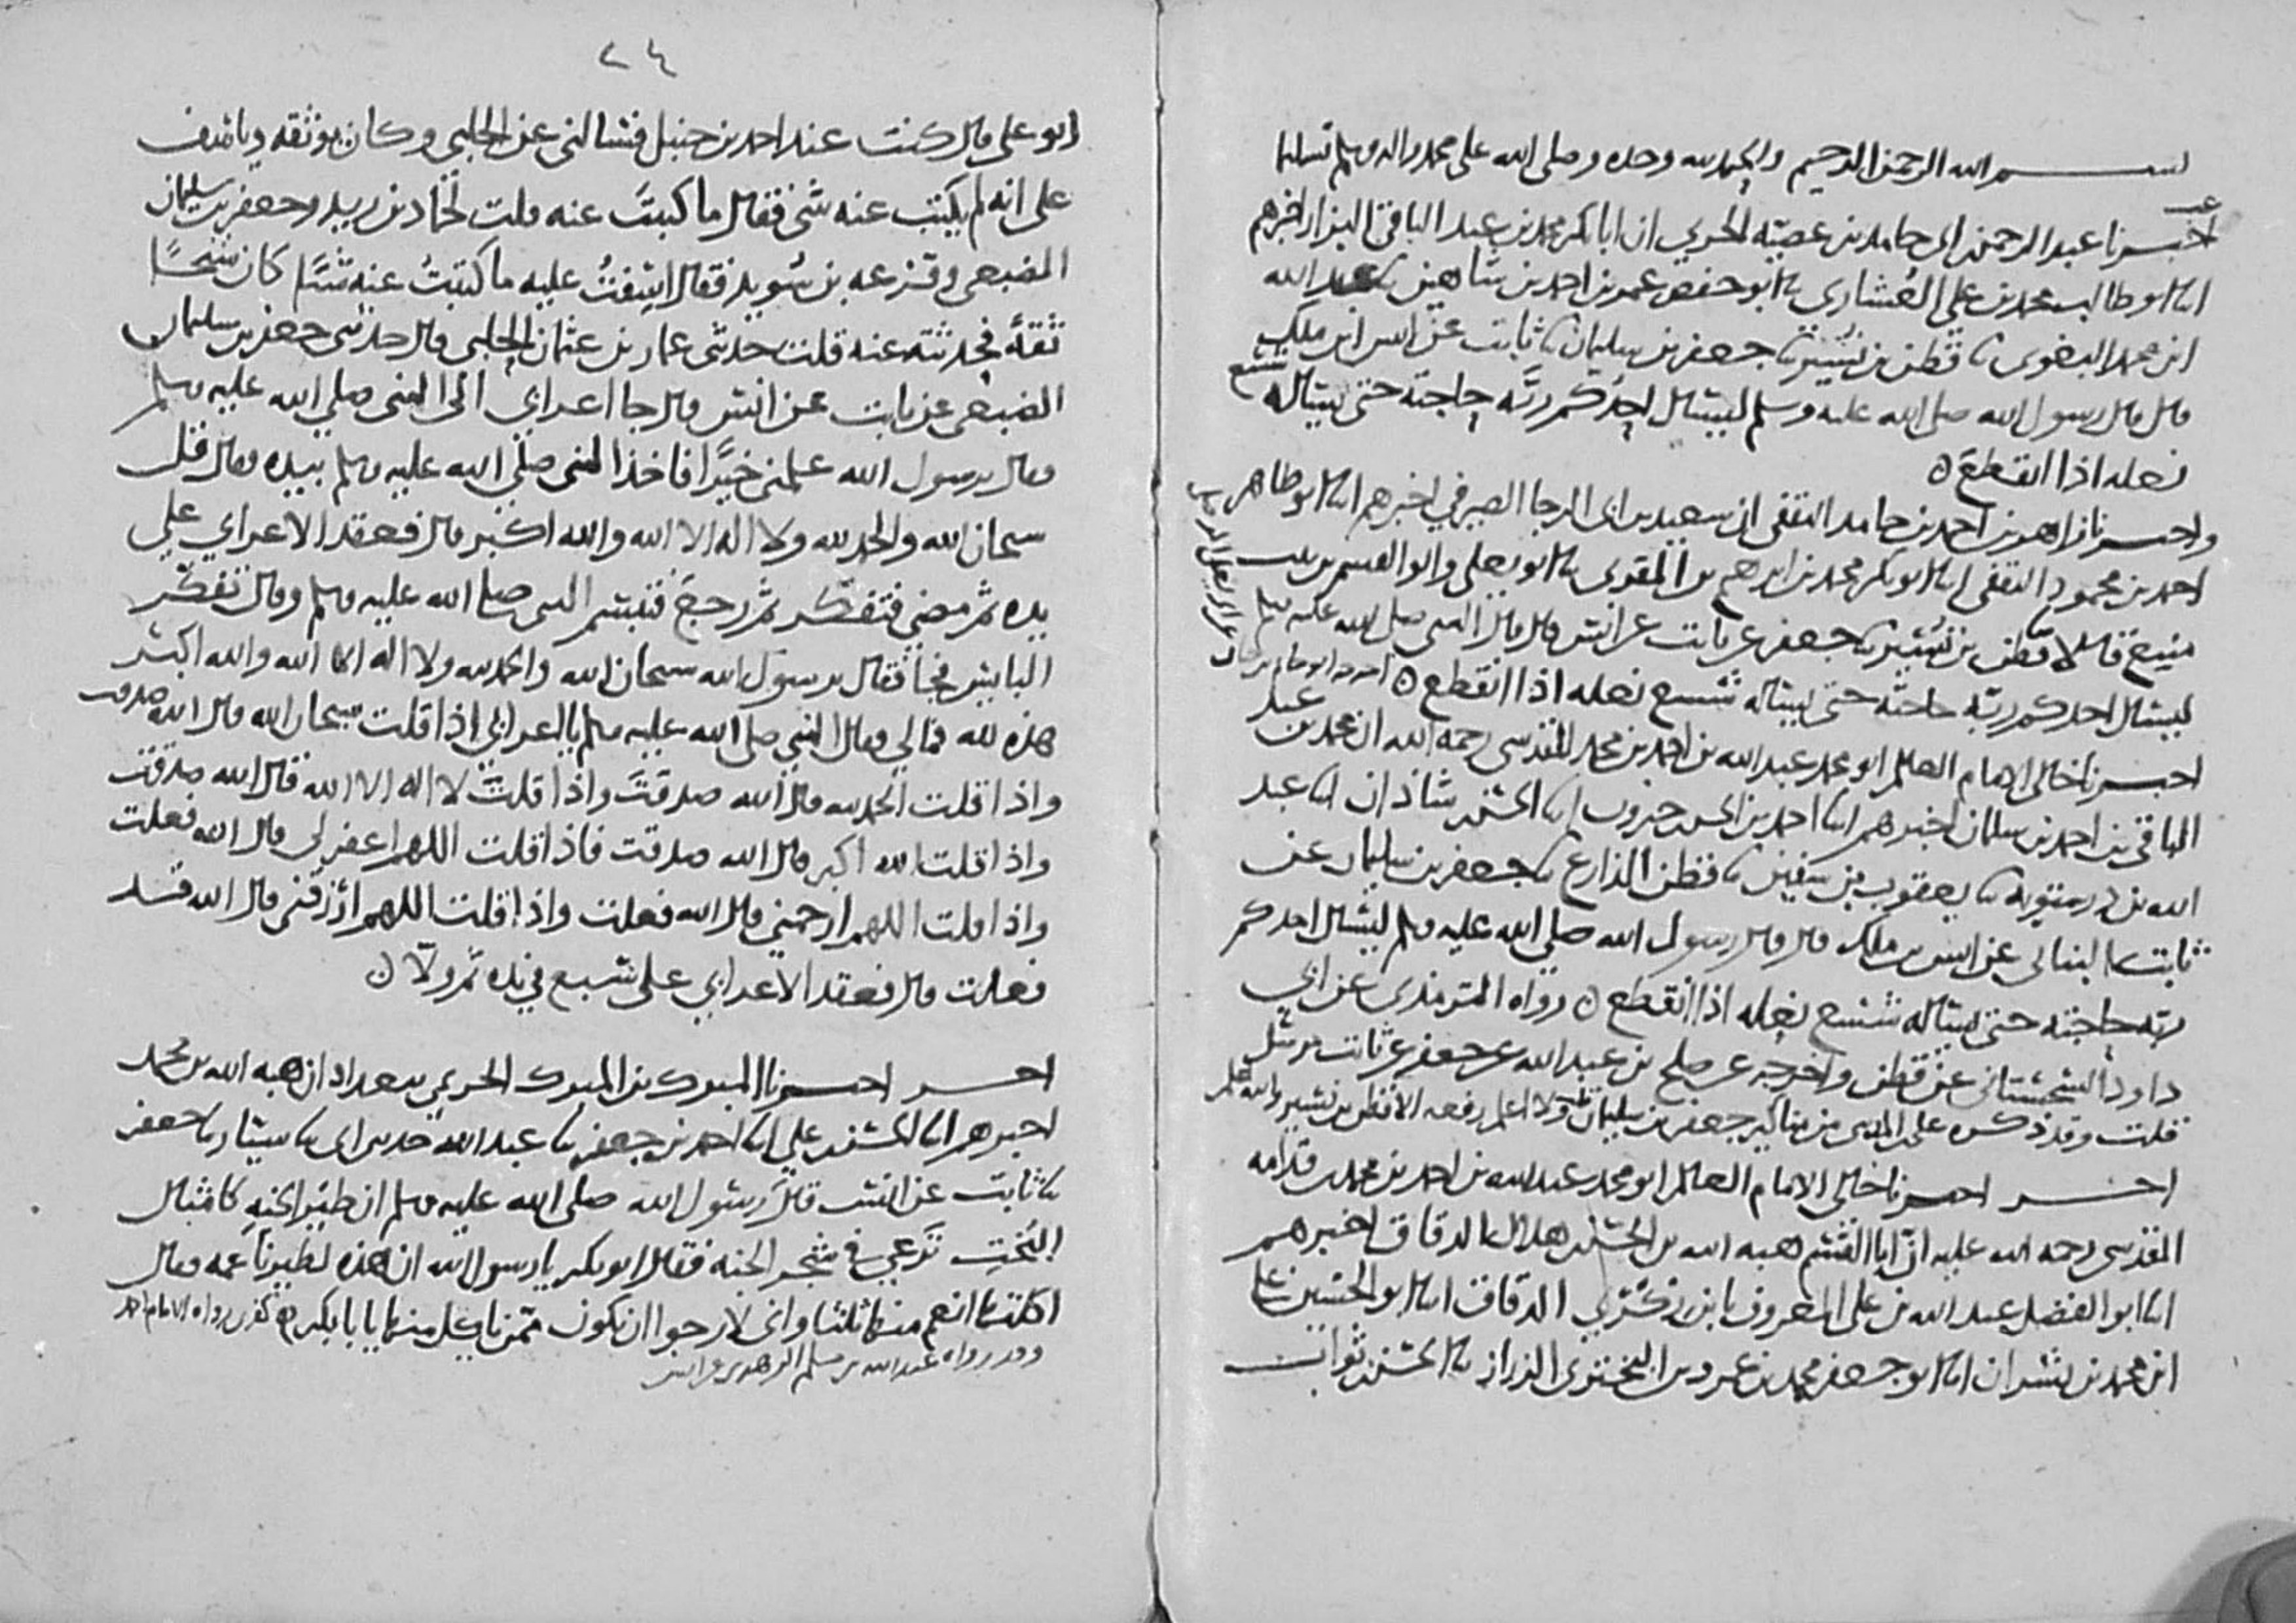 بسم الله الرحمن الرحيم والحمد لله وحده وصلى الله على محمد واله وسلم تسليما
اخبرنا عبد الرحمن حامد بن عصية الحربي ان ابا بكر محمد بن عبد الباقي البزار اخبرهم
ابنا ابو طالب محمد بن علي العشاري نا ابو حفص عمر بن احمد بن شاهين نا عبد الله
ابن محمد البغوي نا قطن بن نسير نا جعفر بن سليمان نا ثابت عن انس ابن ملك
قال قال رسول الله صلى الله عليه وسلم ليسال احدكم ربه حاجته حتى يساله شسع
نعله اذا انقطع ن
واخبرنا زاهر بن احمد بن حامد الثقفي ان سعيد بن ابي الرجا الصيرفي اخبرهم ابنا ابو طاهر
احمد بن محمود الثقفي ابنا ابو بكر محمد بن ابرهيم بن المقري نا ابو يعلى وابو القسم بن بنت
منيع قالا نا قطن بن نسير نا جعفر عن ثابت عن انس قال قال النبي صلى الله عليه وسلم
ليسال احدكم ربه حاجته حتى يساله شسع نعله اذا انقطع ن
اخبرنا خالي الامام العالم ابو محمد عبد الله بن احمد بن محمد المقدسي رحمه الله ان محمد بن عبد
الباقي بن احمد بن سلمان اخبرهم ابنا احمد بن الحسن خيرون ابنا الحسن شاذان ابنا عبد
الله بن درستويه نا يعقوب بن سفين نا قطن الذارع نا جعفر بن سليمان عن
ثابت البناني عن انس بن ملك قال قال رسول الله صلى الله عليه وسلم ليسال احدكم
ربه حاجته حتى يساله شسع نعله اذا انقطع ن رواه الترمذي عن ابي
داود السجستاني عن قطن واخرجه عن صلح بن عبد الله عن جعفر عن ثابت مرسل
قلت وقد ذكره علي المديني من مناكير جعفر بن سليمان ولا اعلم رفعه الا قطن بن نسير والله اعلم
اخبرنا خالي الامام العالم ابو محمد عبد الله بن احمد بن محمد بن قدامه
المقدسي رحمه الله عليه ان ابا القسم هبه الله بن الحسن هلال الدقاق اخبرهم
ابنا ابو الفضل عبد الله بن علي المعروف بابن زكري الدقاق ابنا ابو الحسين علي
ابن محمد بن بشران ابنا ابو جعفر محمد بن عمرو بن البختري الرزاز نا الحسن بن ثواب
٢٤
ابو علي قال كنت عند احمد بن حنبل فسالني عن الحلبي وكان يوثقه
على انه لم يكتب عنه شي فقال ما كتبت عنه قلت لحماد بن زيد وجعفر بن سليمان
الضبعي وقزعه بن سويد فقال اسفت عليه ما كتبت عنه شيا كان شيخا
ثقة فحدثته عنه قلت حدثني عمار بن عثمان الحلبي قال حدثني جعفر بن سليمان
الضبعي عن ثابت عن انس قال جا اعرابي الى النبي صلى الله عليه وسلم
وقال يرسول الله علمني خيرا فاخذ النبي صلى الله عليه وسلم بيده وقال قل
سبحان الله والحمد لله ولا اله الا الله والله اكبر قال فعقد الاعرابي على
يده ثم مضى فتفكر ثم رجع فتبسم النبي صلى الله عليه وسلم وقال تفكر
البايس فجا فقال يرسول الله سبحان الله والحمد لله ولا اله الا الله والله اكبر
هذه لله فما لي وقال النبي صلى الله عليه وسلم يا اعرابي اذا قلت سبحان الله قال الله صدقت
واذا قلت الحمد لله قال الله صدقت واذا قلت لا اله الا الله قال الله صدقت
واذا قلت الله اكبر قال الله صدقت فاذا قلت اللهم اغفر لي قال الله فعلت
واذا قلت اللهم ارحمني قال الله فعلت واذا قلت اللهم ارزقني قال الله قد
فعلت قال فعقد الاعرابي على سبع في يده ثم ولا ن
اخبرنا المبرك بن المبرك الحربي ببغداد ان هبه الله بن محمد
اخبرهم ابنا الحسن علي ابنا احمد بن جعفر نا عبد الله حدثني ابي نا سيار نا جعفر
نا ثابت عن انس قال رسول الله صلى الله عليه وسلم ان طير الجنه كامثال
البخت ترعى في شجر الجنه فقال ابو بكر يا رسول الله ان هذه لطير ناعمه وقال
اكلتها انعم منها ثلثا واني لارجوا ان تكون ممن ياكل منها يا ابا بكر رواه الامام احمد
وقد رواه عبد الله بن مسلم الزهري عن انس